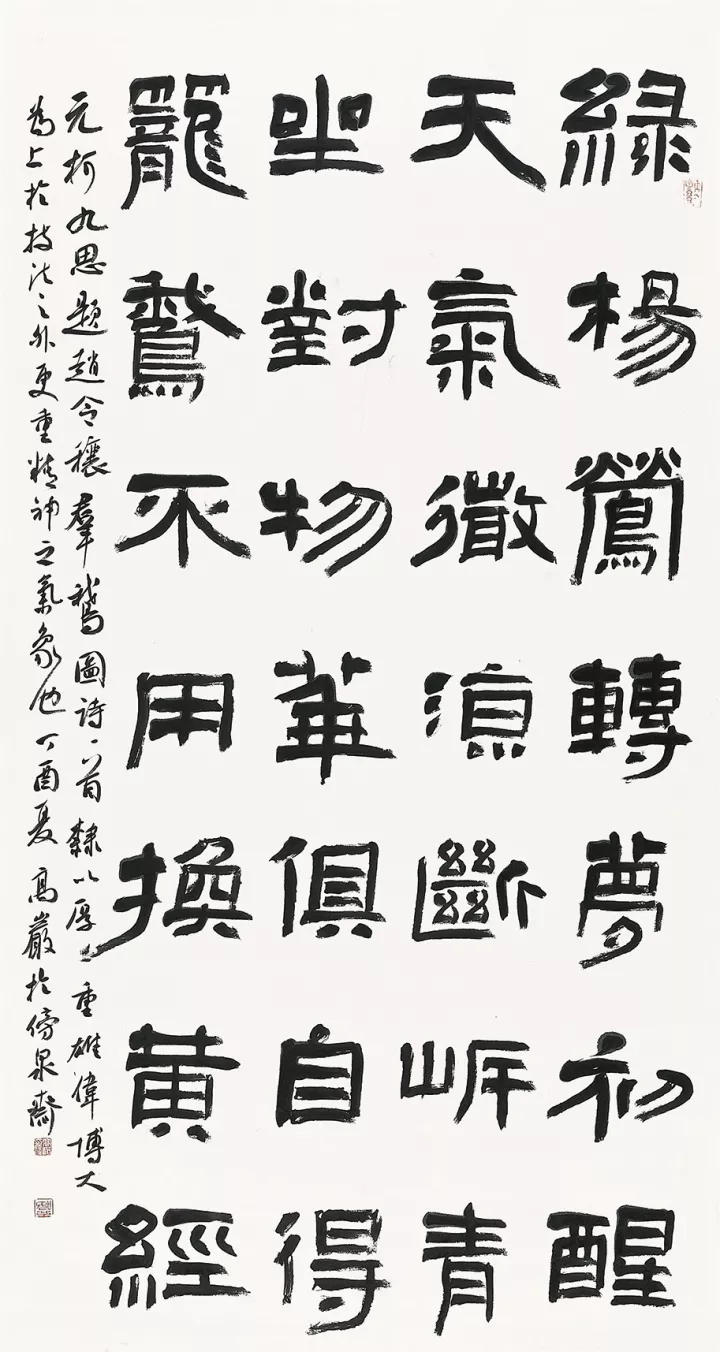 綠楊鶯轉夢初醒
天氣微涼斷岸青
坐對物華俱自得
籠鵞不用換黃經
元柯九思題趙令穰羣鵝圖詩一首隸以厚重雄偉博大
為上於技法之外更重精神之氣象也丁酉夏高嚴於傍泉齋